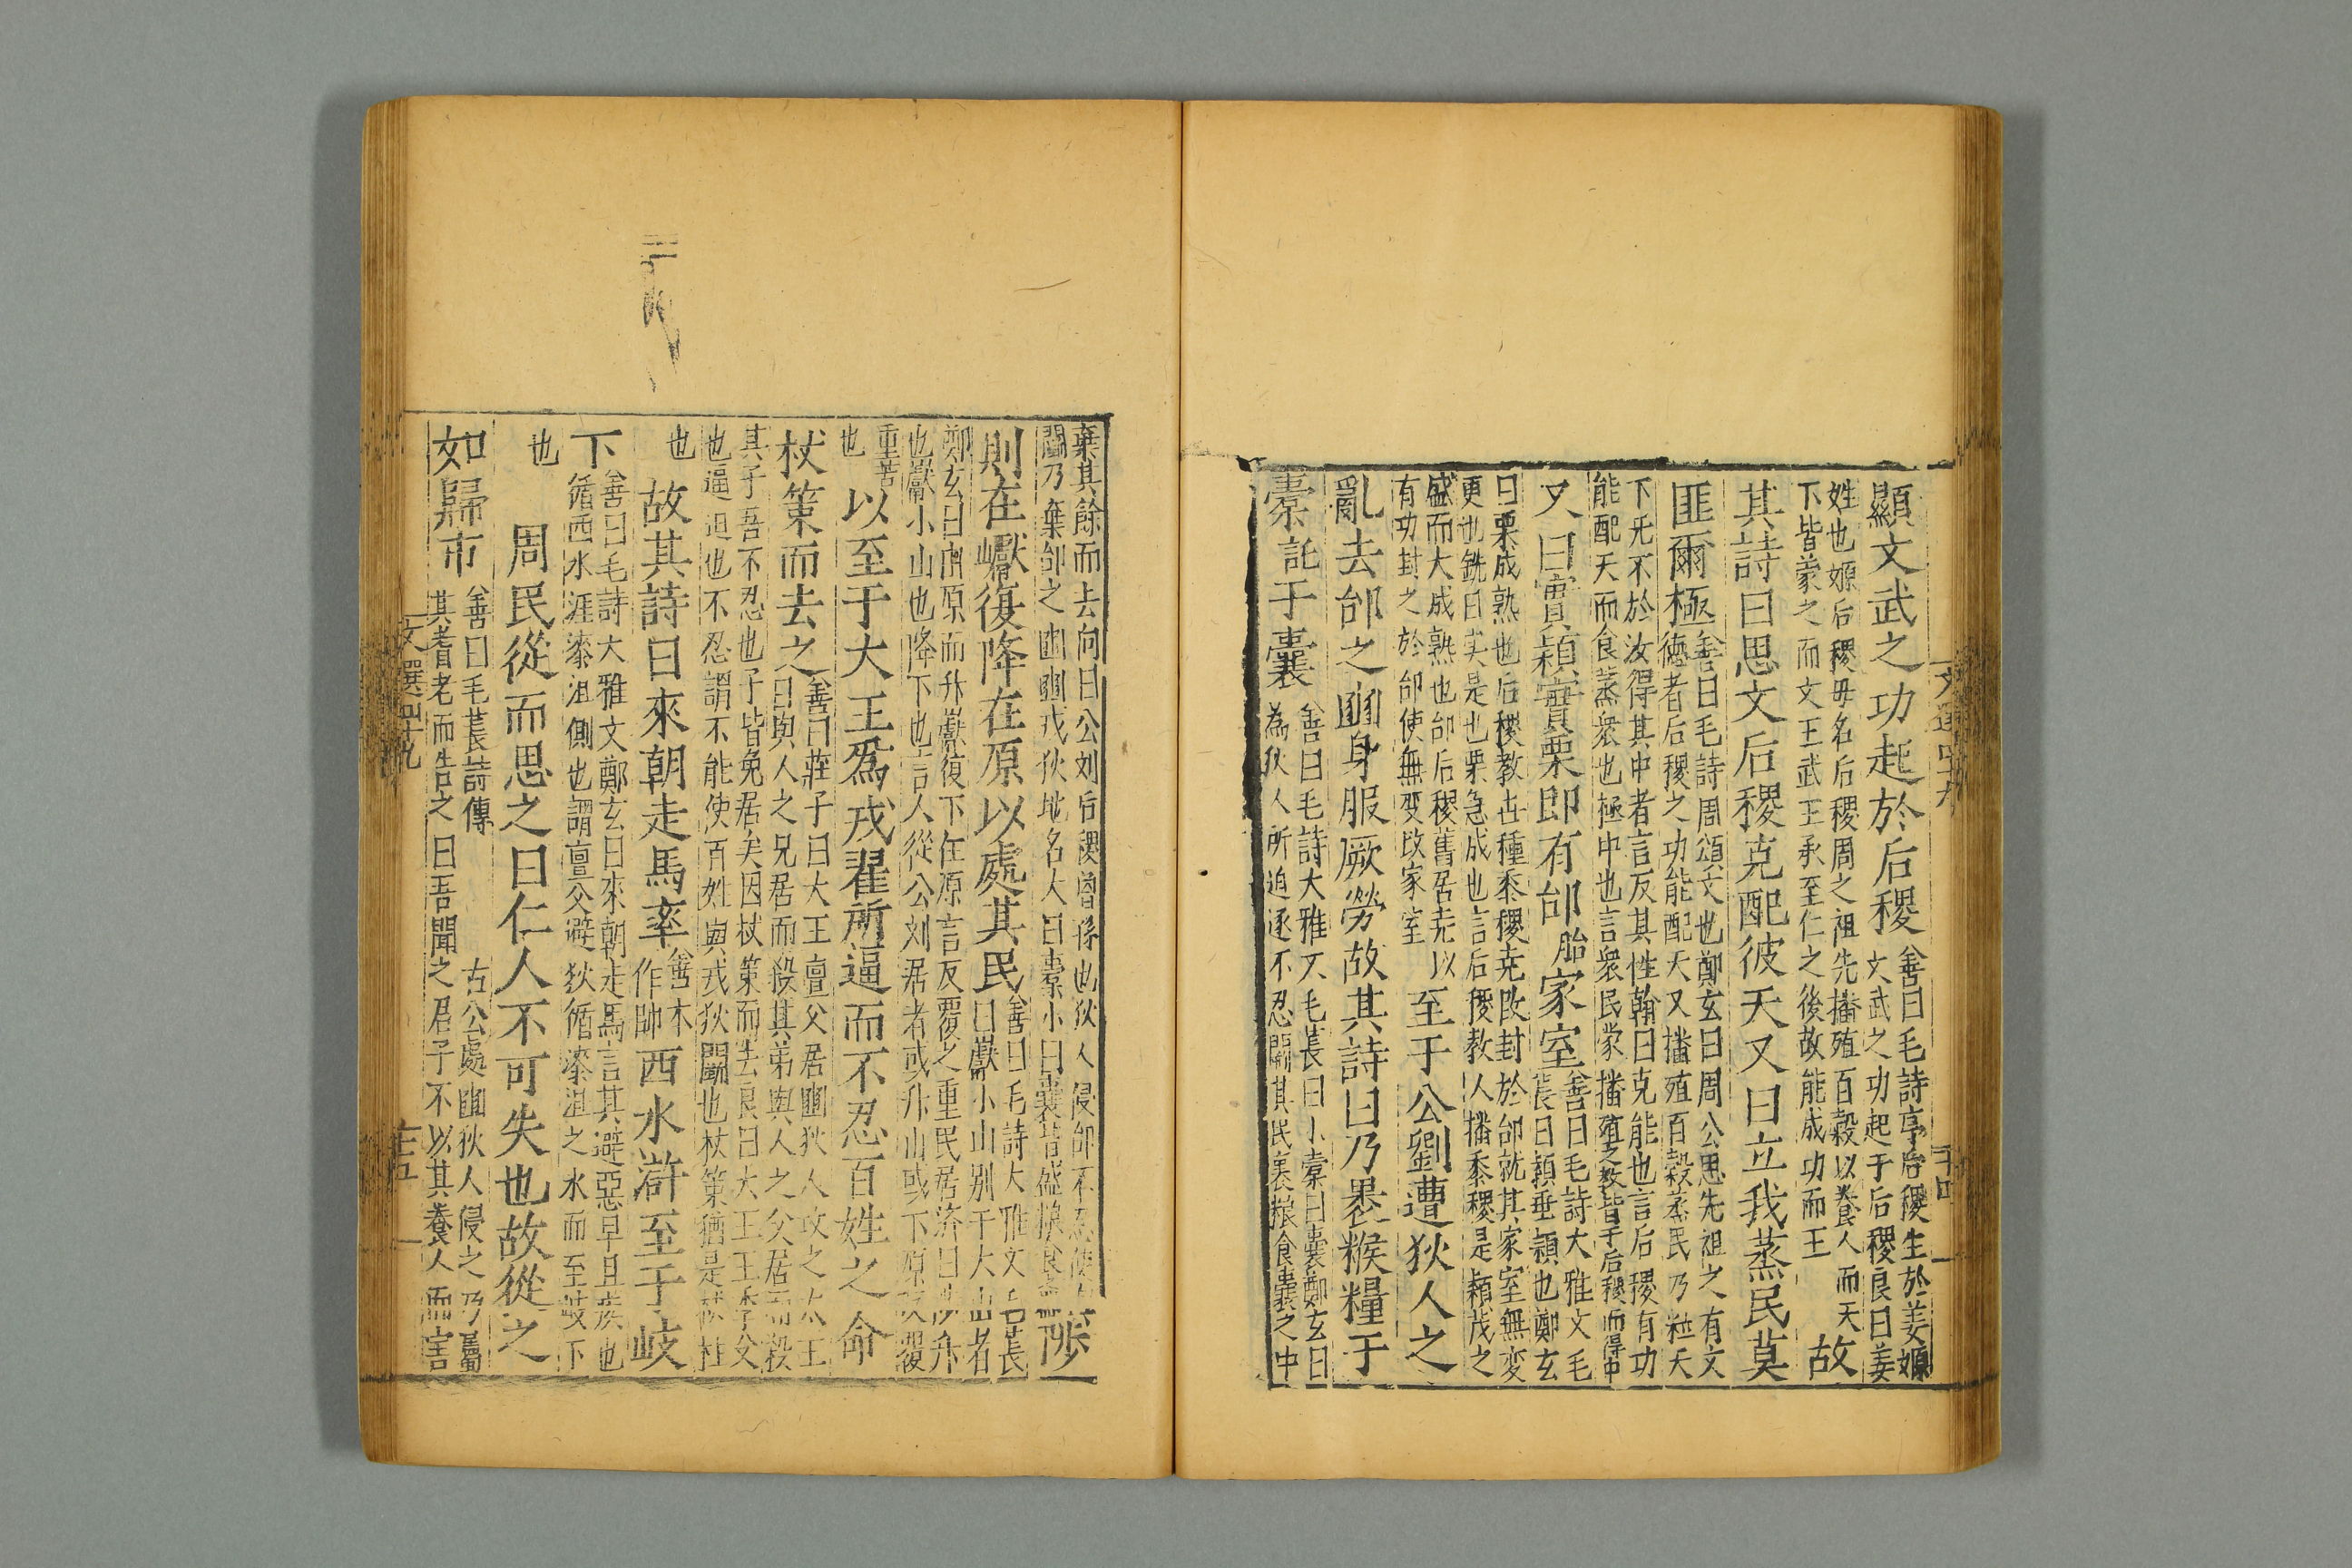 顯文武之功起於后稷善曰毛詩序后稷生於姜嫄
文武之功起于后稷良曰姜
姓也嫄后稷母名后稷周之祖先播殖百穀以養人而天
下皆蒙之而文王武王承至仁之後故能成功而王
故
其詩曰思文后稷克配彼天又曰立我蒸民莫
匪爾極善曰毛詩周頌文也鄭玄曰周公思先祖之有文
德者后稷之功能配天又播殖百穀蒸民乃粒天
下无不於汝得其中者言反其性翰曰克能也言后稷有功
能配天而食蒸衆也極中也言衆民蒙播殖之教皆于后稷而得中
又曰實穎實栗即有邰胎家室善曰毛詩大雅文毛
萇曰穎垂穎也鄭玄
曰栗成熟也后稷教世種黍稷堯改封於邰就其家室無変
更也銑曰実是也栗急成也言后稷教人播黍稷是穎茂之
盛而大成熟也邰后稷舊居堯以
有功封之於邰使無変改家室
至于公劉遭狄人之
亂去邰之豳身服厥勞故其詩曰乃裹糇糧于
橐託于囊善曰毛詩大雅文毛萇曰小橐曰囊鄭玄曰
為狄人所迫逐不忍鬬其民裹粮食囊之中
文選四十九
二十四
棄其餘而去向曰公刘后稷曾孫也狄人侵邰不忍使
鬬乃棄邰之豳豳戎狄地名大曰橐小曰囊皆盛粮食
陟
則在巘復降在原以處其民善曰毛詩大雅文毛萇
曰巘小山別于大山者
鄭玄曰由原而升巘復下在原言反覆之重民居濟曰陟升
也巘小山也降下也言人從公刘居者或升山或下原反覆
重苦
也
以至于大王爲戎翟所逼而不忍百姓之命
杖策而去之善曰莊子曰大王亶父居豳狄人攻之太王
曰與人之兄居而殺其弟與人之父居而殺
其子吾不忍也子皆免居矣因杖策而去良曰大王王季父
也逼迫也不忍謂不能使百姓與戎狄鬬也杖策猶是杖柱
也
故其詩曰來朝走馬率善本
作帥西水滸至于岐
下善曰毛詩大雅文鄭玄曰來朝走馬言其避惡早且疾也
循西水涯漆沮側也謂亶父避狄循漆沮之水而至岐下
也
周民從而思之曰仁人不可失也故從之
如歸市善曰毛萇詩傳
古公處豳狄人侵之乃屬
其耆老而告之曰吾聞之君子不以其養人而害
文選四十九
二十五